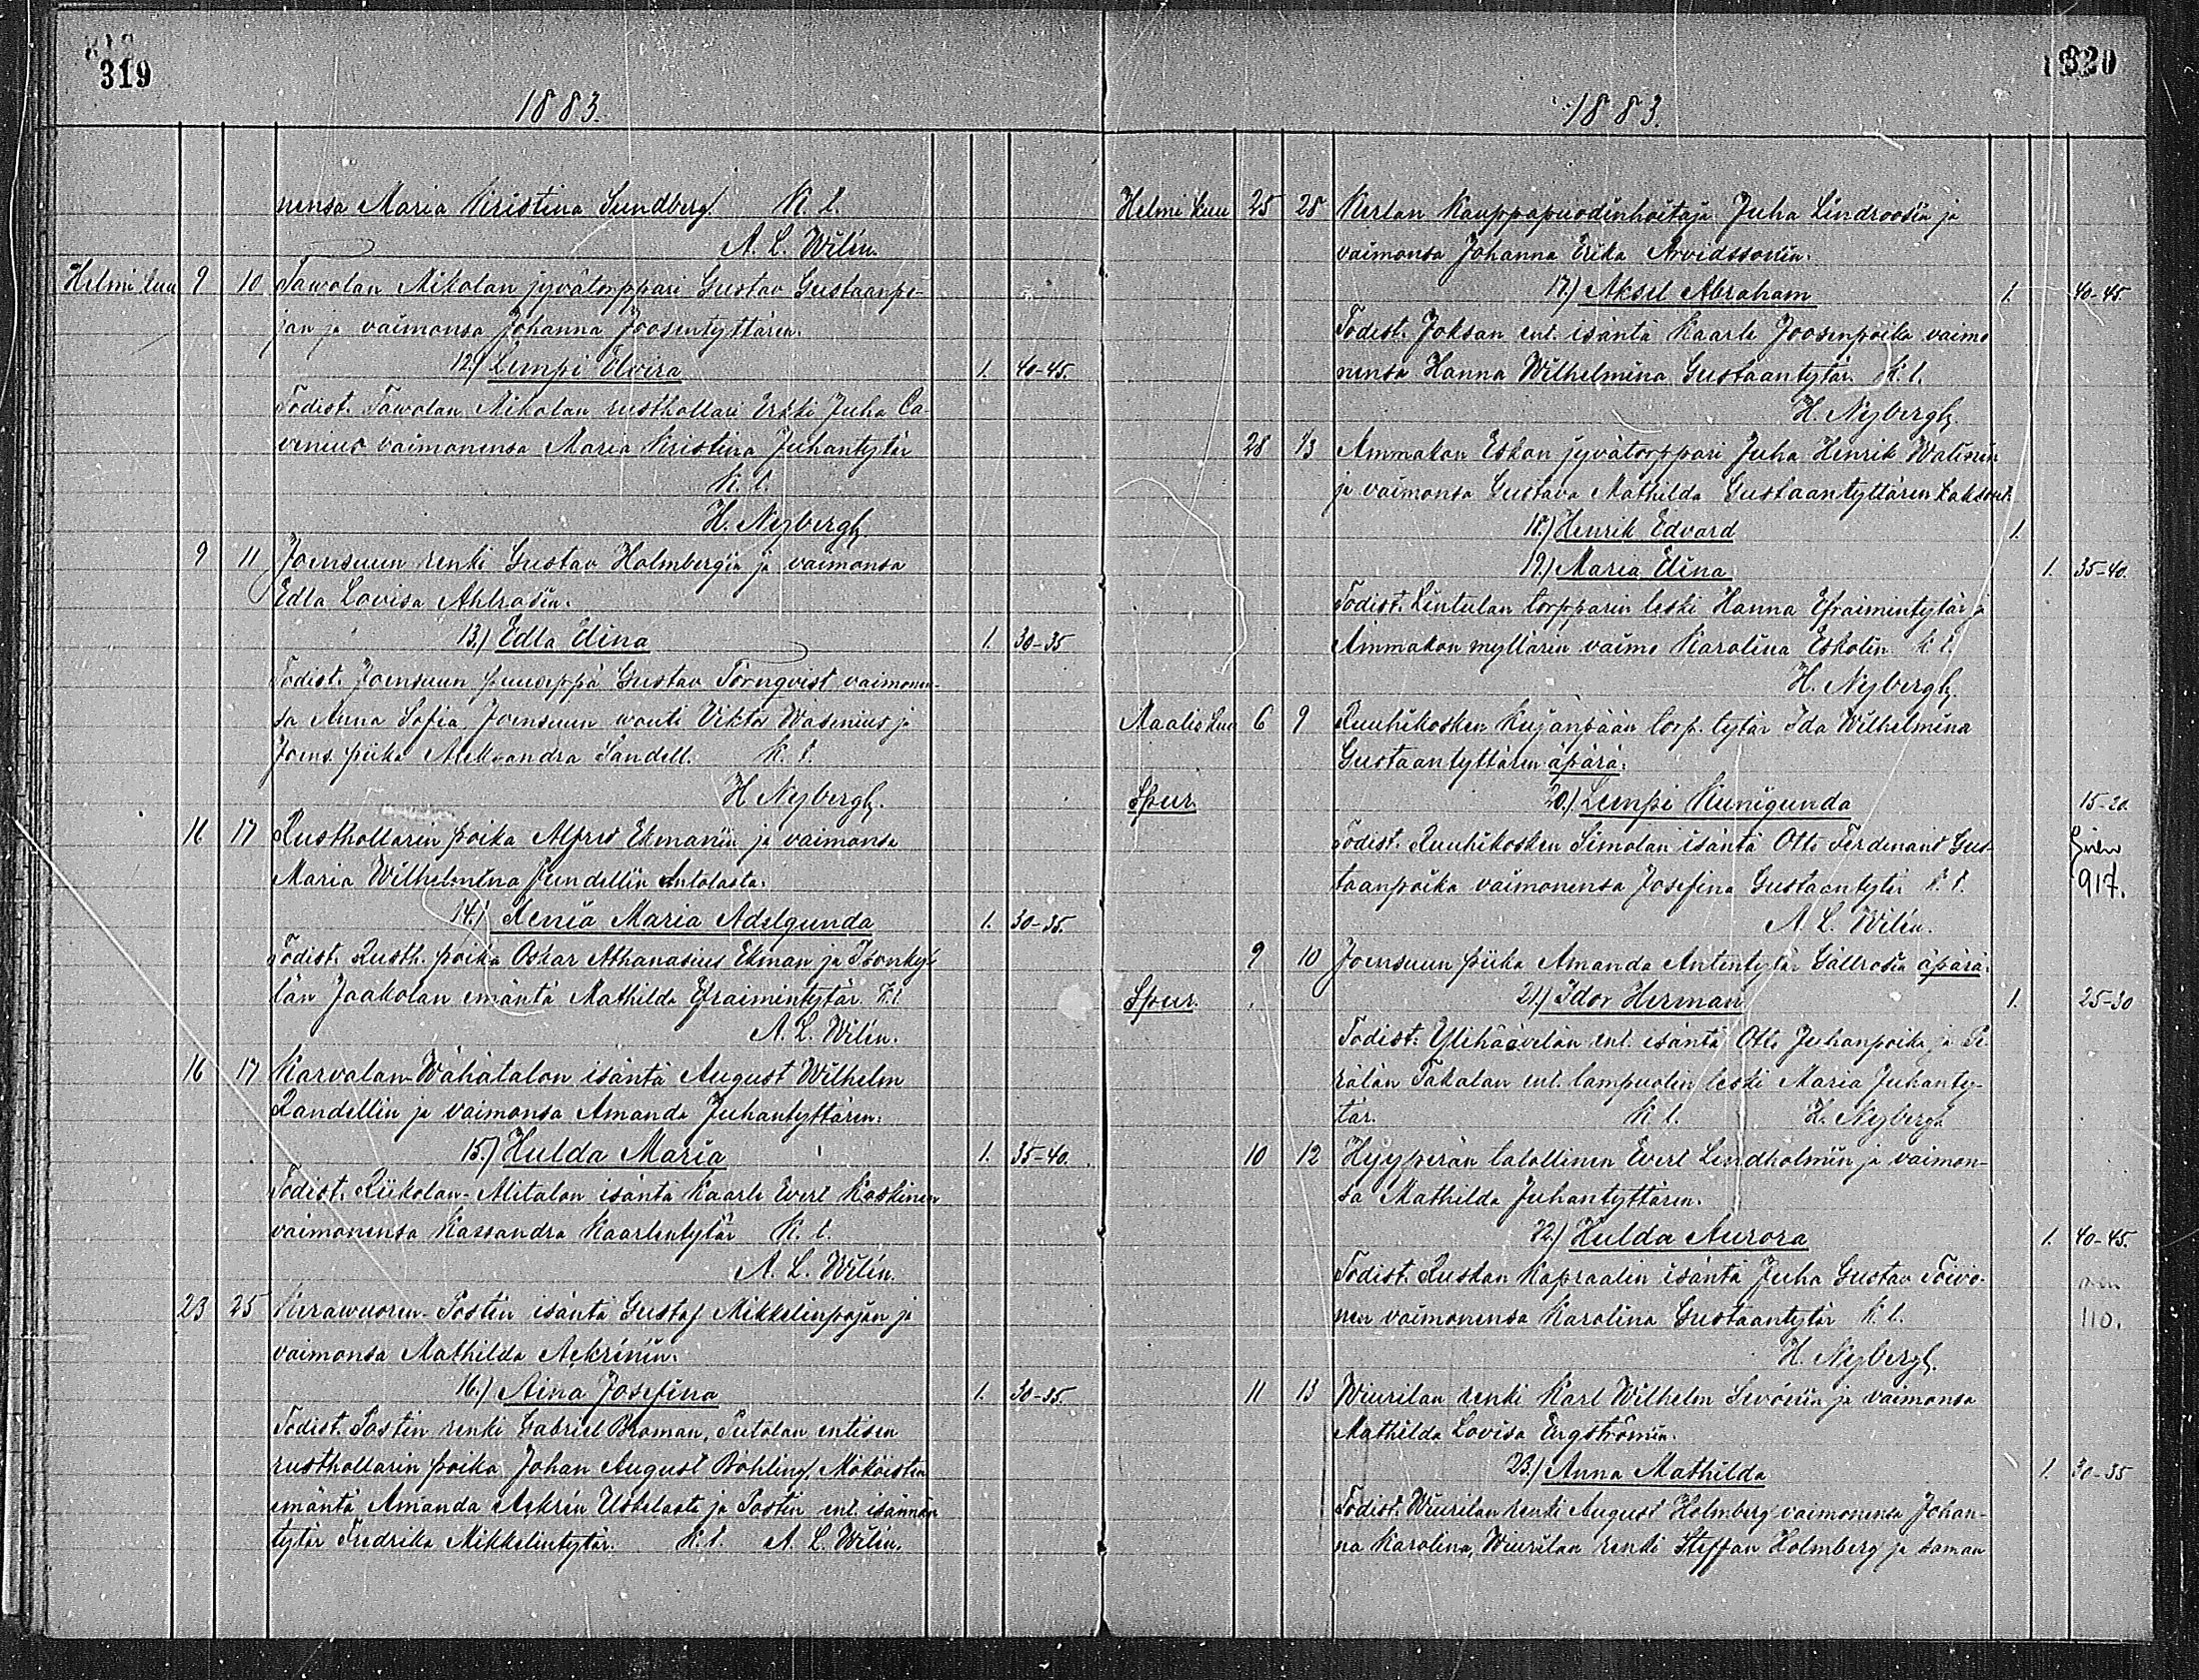 319
1883.
nensa Maria Kristina Sundberg. K. l.
A. L. Wilén.
Helmikuu 9 10 Tawolan Mikolan jyvätorppari Gustav Gustaanpo-
jan ja vaimonsa Johanna Joosentyttären.
12.) Lempi Elvira 1. 40-45.
Todist. Tawolan Mikolan rusthollari Erkki Juha Ca-
venius vaimonensa Maria Kristina Juhantytär
K. l.
H. Nybergh
9 11 Joensuun renki Gustav Holmbergin ja vaimonsa
Edla Lovisa Ahlrosin.
13.) Edla Elina 1. 30-35
Todist. Joensuun puuseppä Gustav Törnqvist vaimonen-
sa Anna Sofia, Joensuun wouti Viktor Wasenius ja
Joens. piika Aleksandra Sandell. K. l.
H Nybergh.
16 17 Rusthollarin poika Alfred Ekmanin ja vaimonsa
Maria Wilhelmina Jundellin Antolasta.
14.) Xenia Maria Adelgunda 1. 30-35.
Todist. Rusth. poika Oskar Athanasius Ekman ja Isonky-
län Jaakolan emäntä Mathilda Efraimintytär K. l.
A. L. Wilén.
16 17 Karvalan Wähätalon isäntä August Wilhelm
Randellin ja vaimonsa Amanda Juhantyttären.
15.) Hulda Maria 1. 35-40.
Todist. Riikolan-Alitalon isäntä Kaarle Evert Koskinen
vaimonensa Kassandra Kaarlentytär K. l.
A. L. Wilén.
23 25 Kurawuoren-Postin isäntä Gustaf Mikkelinpojan ja
vaimonsa Mathilda Ackrénin.
16.) Aina Josefina 1. 30-35.
Todist. Postin renki Gabriel Broman, entisen
rusthollarin poika Johan August Böhling, Mököisten
emäntä Amanda Ackrén Uskelasta ja Postin ent. isännän
tytär Fredrika Mikkelintytär. K. l. A. L. Wilén.
320
1883.
Helmikuu 25 28 Kerlan Kauppapuodinhoitaja Juha Lindroosin ja
vaimonsa Johanna Erika Arvidssonin.
17.) Aksel Abraham 1. 40-45.
Todist. Joksan ent. isäntä Kaarle Joosenpoika vaimo
nensa Hanna Wilhelmina Gustaantytär. K. l.
H. Nybergh.
28 1/3 Ammakon Eskon jyvätorppari Juha Henrik Walinin
ja vaimonsa Gustava Mathilda Gustaantyttären kaksoset.
18.) Henrik Edvard 1.
19.) Maria Elina 1. 35-40.
Todist. Lintulan torpparin leski Hanna Efraimintytär ja
Ammakon myllärin vaimo Karolina Eskolin K. l.
H. Nybergh
Maaliskuu 6 9 Ruuhikosken Kujanpään torp. tytär Ida Wilhelmina
Gustaantyttären äpärä.
Spur. 20.) Lempi Kunigunda 15-20
Todist. Ruuhikosken Simolan isäntä Otto Ferdinand Gus-
taanpoika vaimonensa Josefina Gustaantytär K. l.
917.
A. L. Wilén.
9 10 Joensuun piika Amanda Antintytär Gällrosin äpärä.
Spur. 21.) Idor Herman 1. 25-30
Todist. Ylihäävelän ent. isäntä Otto Juhanpoika ja Pe-
rälän Takalan ent. lampuotin leski Maria Juhanty-
tär. K. l. H. Nybergh
10 12 Hyyperän talollinen Evert Lindholmin ja vaimon-
sa Mathilda Juhantyttären.
22.) Hulda Aurora 1. 40-45.
Todist. Ruskan Kapraalin isäntä Juha Gustav Toivo-
nen vaimonensa Karolina Gustaantytär K. l.
110.
H. Nybergh.
11 13 Wiurilan renki Karl Wilhelm Sevónin ja vaimonsa
Mathilda Lovisa Engströmin.
23.) Anna Mathilda 1. 30-35
Todist. Wiurilan renki August Holmberg vaimonensa Johan-
na Karolina, Wiurilan renki Steffan Holmberg ja saman